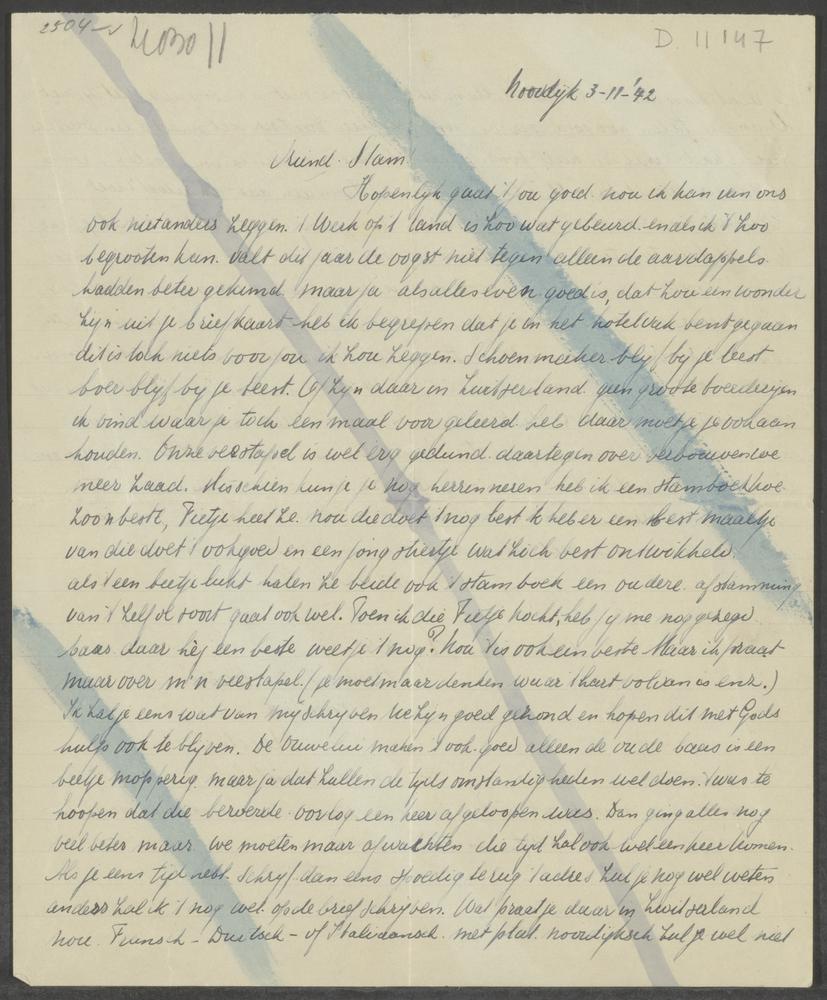 2504
D 11147
Noordyk 3-11-'42
Vriend. Stam!
Hopenlyk gaat 't jou goed. nou ik kan van ons
ook niet anders zeggen. 't Werk op 't land is zoo wat gebeurd. en als ik 't zoo
begrooten kan. valt dit jaar de oogst niet tegen alleen de aardappels.
hadden beter gekund maar ja als alles even goed is, dat zou een wonder
zyn uit je briefkaart heb ik begrepen dat je in het hotelvak bent gegaan
dit is toch niets voor jou ik zou zeggen. Schoenmaker blijf by je leest
boer blyf by je beest. Of zyn daar in Zwitzerland. geen groote boerderyen
ik vind waar je toch een maal voor geleerd heb daar moet je je ook aan
houden. Onze veestapel is wel erg gedund. daartegin over verbouwen we
meer zaad. Misschien kun je je nog herrinneren heb ik een stamboek koe.
zoo'n beste, Fietje heet ze. nou die doet 't nog best ik heb er een best maaltje
van die doet 't ook goed en een jong stiertje wat zich best ontwikkeld.
als 't een beetje lukt halen ze beide ook 't stamboek een oudere. afstamming
van 't zelfde soort gaat ook wel. Toen ik die Fietje kocht, heb jy me nog gezegd
baas daar hèj een beste weetje 't nog? Nou 't is ook een beste Maar ik praat
maar over m'n veestapel. (je moet maar denken waar 't hart vol van is enz.)
Ik zal je eens wat van my schryven. We zyn goed gezond en hopen dit met Gods
hulp ook te blyven. De Ouwelui maken 't ook goed alleen de oude baas is een
beetje mopperig. maar ja dat zullen de tyds omstandigheden wel doen. 't was te
hoopen dat die beroerde oorlog een keer afgeloopen was. Dan ging alles nog
veel beter maar we moeten maar afwachten die tyd zal ook wel een keer komen.
Als je eens tyd hebt. schryf dan eens spoedig terug 't adres zul je nog wel weten
anders zal ik 't nog wel op de brief schryven. Wat praat je daar in Zwitzerland
nou. Fransch - Duitsch - of Italiaansch. met plat. noordijksch zul je wel niet